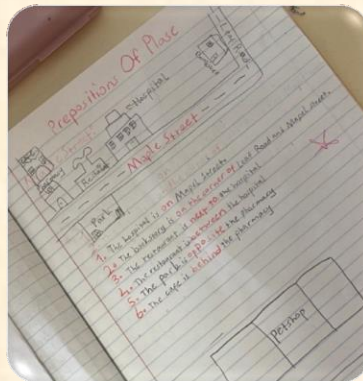 Prepositions Of Plase
Hospital
Maple Street
Park
1. The hospital is on Mapel Street.
2. The bookstore is on the corner of Leaf Road and Mapel Street.
3. The restaurant is next to the hospital
4. The restaurant is between the hospital
5. The park is opposite the pharmacy
6. The cafe is behind the pharmacy
Petshop